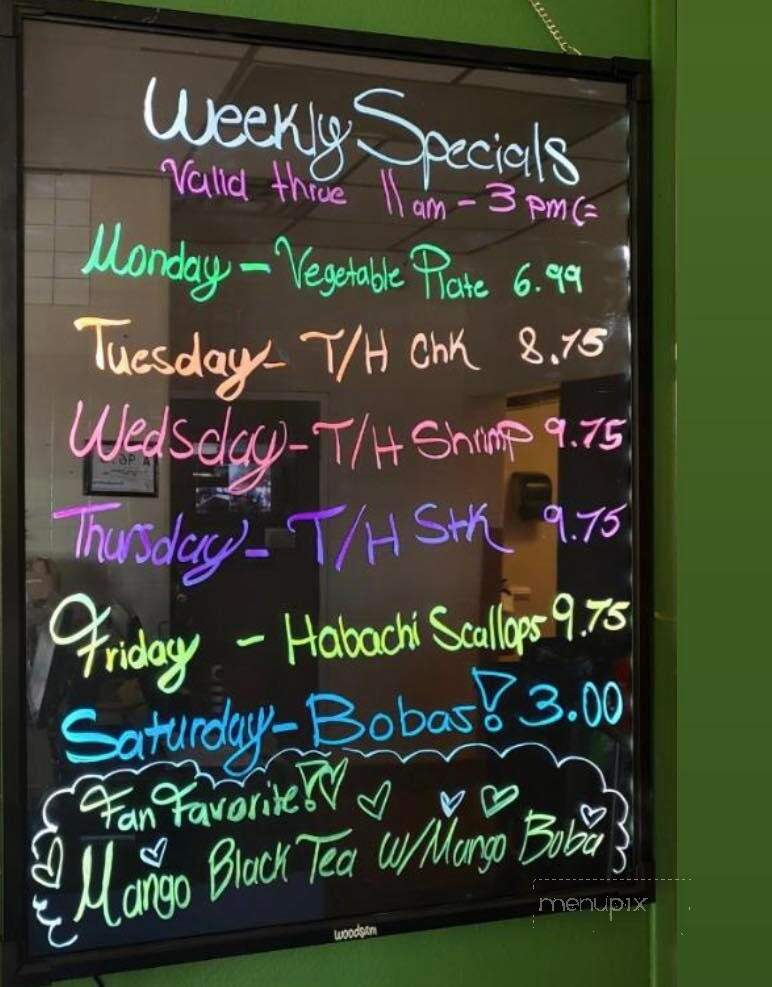 Weekly Specials
Valid thrue 11am - 3pm (=
Monday - Vegetable Plate 6.99
Tuesday - T/H Chk 8.75
Wedsday - T/H Shrimp 9.75
Thursday - T/H Stk 9.75
Friday - Habachi Scallops 9.75
Saturday - Bobas! 3.00
Fan Favorite!
Mango Black Tea w/Mango Boba
woodsam
menupix